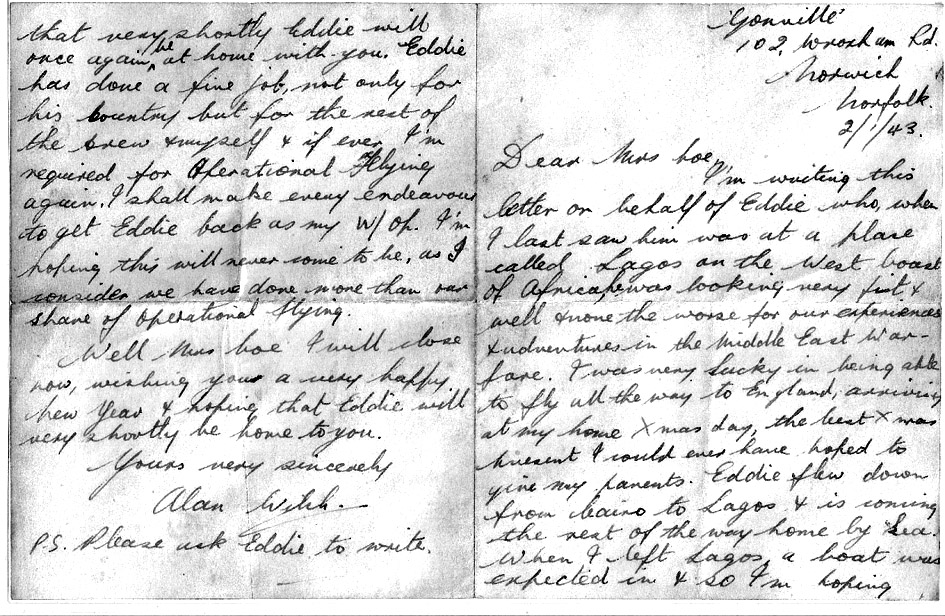 "Gonville"
102, Wroxham Rd.
Norwich
Norfolk.
2/1/43.
Dear Mrs Coe,
I'm writing this
letter on behalf of Eddie who, when
I last saw him was at a place
called Lagos on the West Coast
of Africa, he was looking very fit &
well & none the worse for our experiences
& adventures in the Middle East War-
fare. I was very lucky in being able
to fly all the way to England, arriving
at my home Xmas day, the best Xmas
present I could ever have hoped to
give my parents. Eddie flew down
from Cairo to Lagos & is coming
the rest of the way home by Sea.
When I left Lagos, a boat was
expected in & so I'm hoping
that very shortly Eddie will
once again be at home with you. Eddie
has done a fine job, not only for
his Country but for the rest of
the crew & myself & if ever I'm
required for Operational Flying
again, I shall make every endeavour
to get Eddie back as my W/Op. I'm
hoping this will never come to be, as I
consider we have done more than our
share of Operational flying.
Well Mrs Coe I will close
now, wishing you a very happy
New Year & hoping that Eddie will
very shortly be home to you.
Yours very sincerely
Alan
P.S. Please ask Eddie to write.